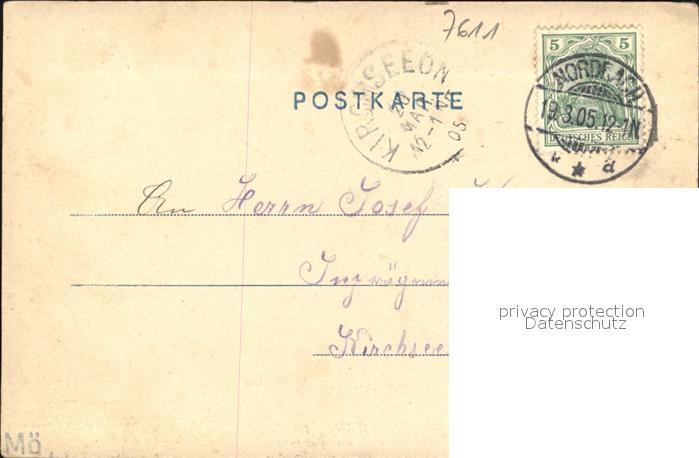 7611
5 5
NORDRACH
19.3.05.12-1N
DEUTSCHES REICH
* * a
KIRCHSEEON
20
MAR
12-1
05
POSTKARTE
An Herrn Josef
privacy protection
Datenschutz
Kirchsee
Mö